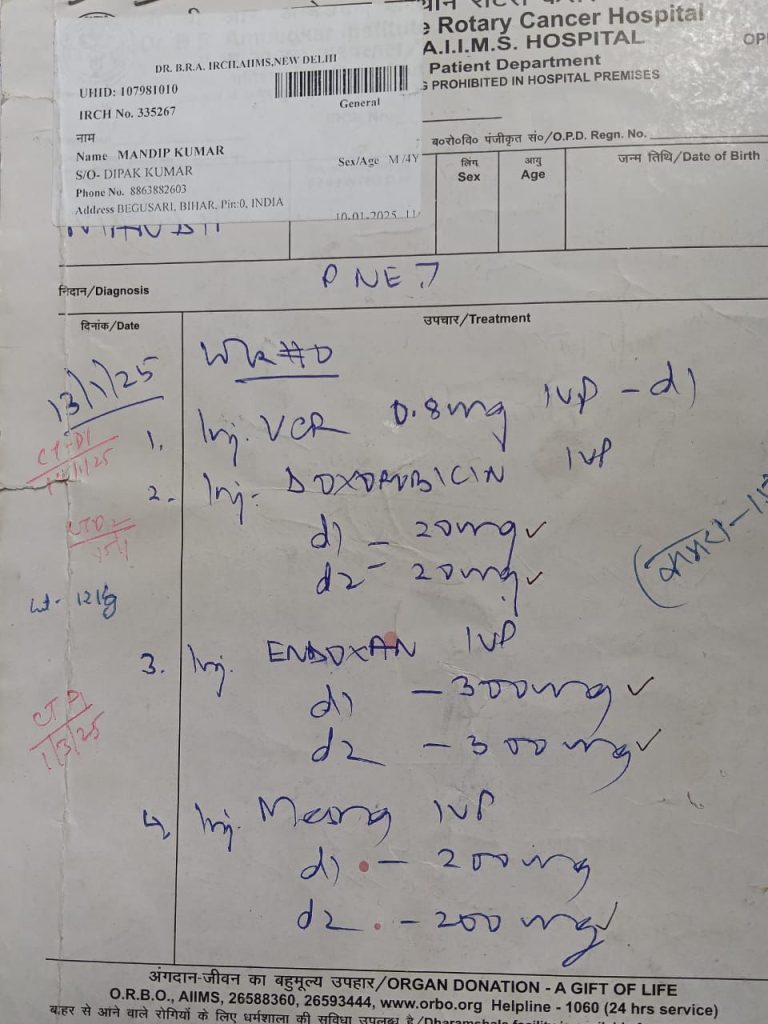 e Rotary Cancer Hospital
A.I.I.M.S. HOSPITAL
Patient Department
G PROHIBITED IN HOSPITAL PREMISES
OPD
DR. B.R.A. IRCH,AIIMS,NEW DELHI
UHID: 107981010
IRCH No. 335267
General
नाम
Name MANDIP KUMAR
Sex/Age M /4Y
S/O- DIPAK KUMAR
Phone No. 8863882603
Address BEGUSARI, BIHAR, Pin:0, INDIA
10-01-2025
ब०रो०वि० पंजीकृत सं०/O.P.D. Regn. No.
लिंग
Sex
आयु
Age
जन्म तिथि/Date of Birth
निदान/Diagnosis
PNET
दिनांक/Date
उपचार/Treatment
13/1/25
Wk#0
1. Inj. VCR 0.8mg IVP - d1
2. Inj. DOXORUBICIN IVP
d1 - 20mg ✓
d2 - 20mg ✓
wt - 12kg
3. Inj. ENDOXAN IVP
d1 - 300mg ✓
d2 - 300mg ✓
CT D1
1/3/25
4. Inj. Mesna IVP
d1 - 200mg
d2 - 200mg ✓
अंगदान-जीवन का बहुमूल्य उपहार/ORGAN DONATION - A GIFT OF LIFE
O.R.B.O., AIIMS, 26588360, 26593444, www.orbo.org Helpline - 1060 (24 hrs service)
बाहर से आने वाले रोगियों के लिए धर्मशाला की सुविधा उपलब्ध है/Dharamshala